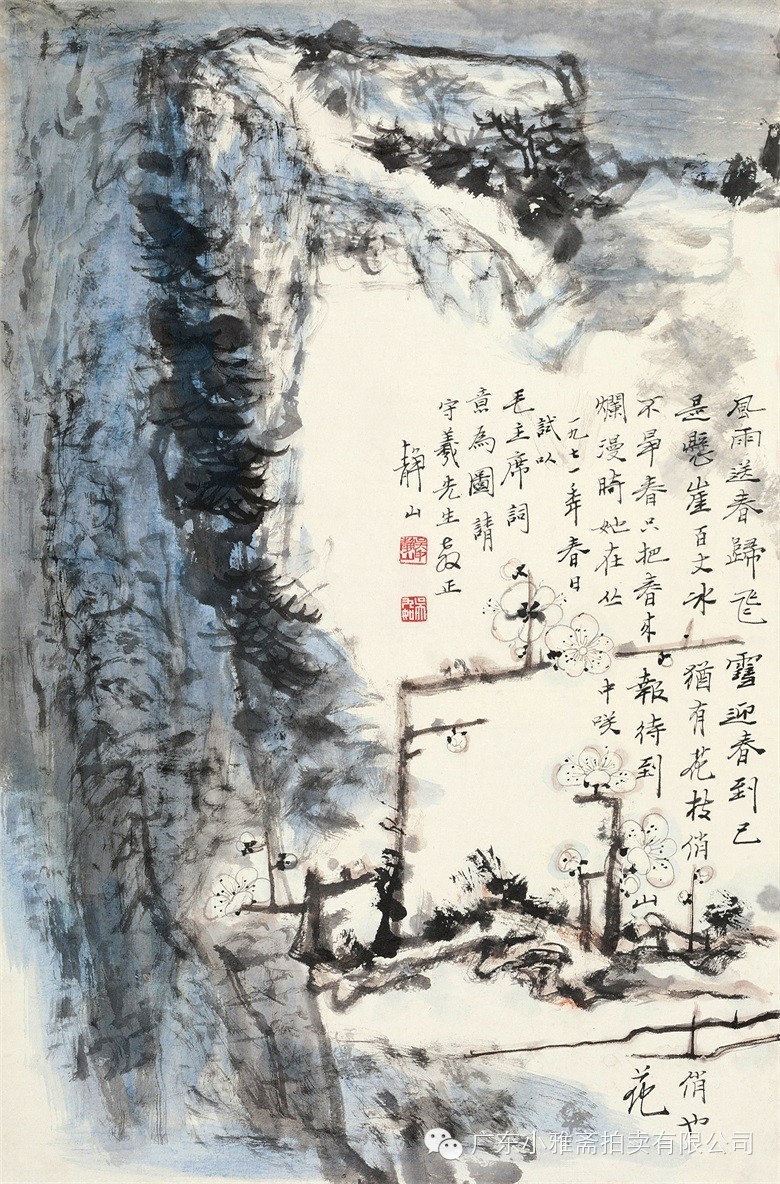 風雨送春歸飛雪迎春到已
是懸崖百丈冰猶有花枝俏俏也
不爭春只把春來報待到山花
爛漫時她在丛中咲
一九七一年春日
試以
毛主席詞
意為圖請
宇羲先生教正
靜山
广东小雅斋拍卖有限公司